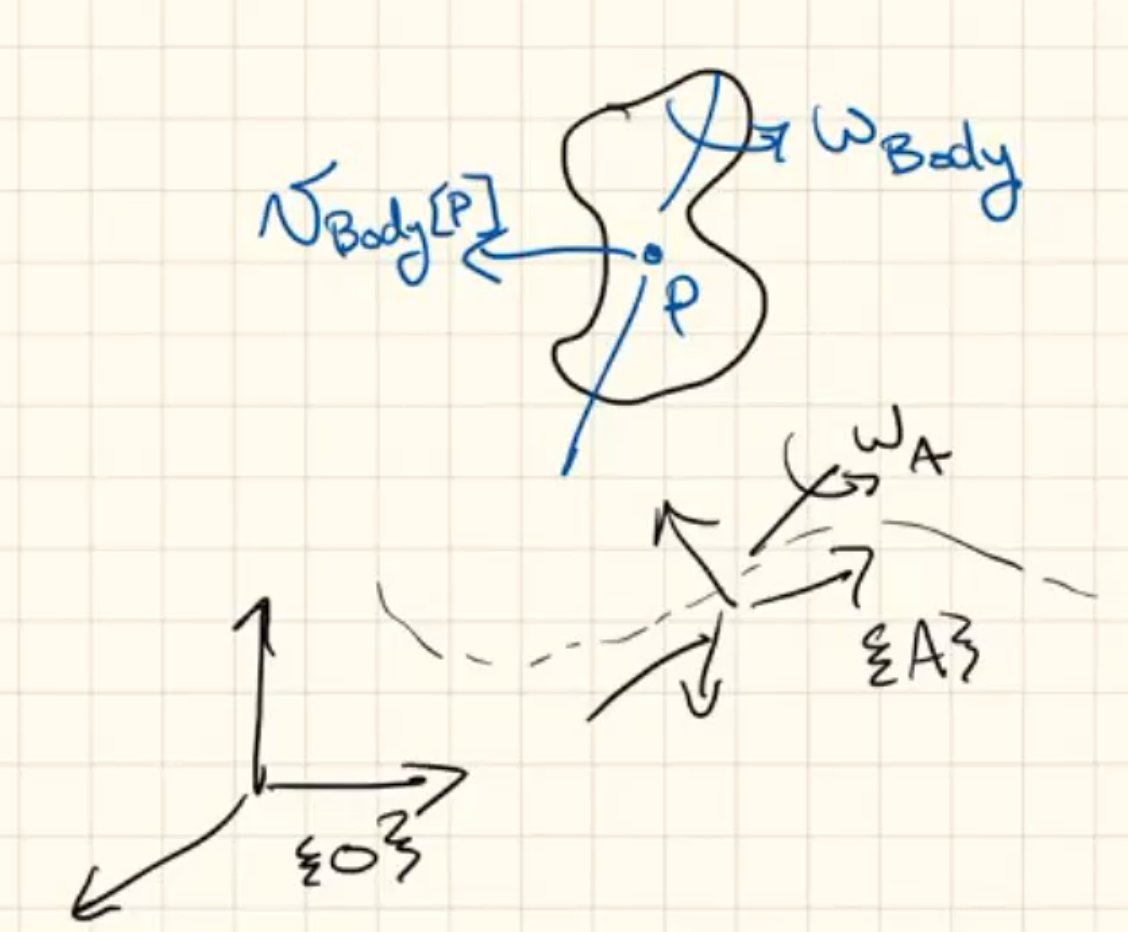 ω_Body
v_Body[P]
P
ω_A
{A}
{O}